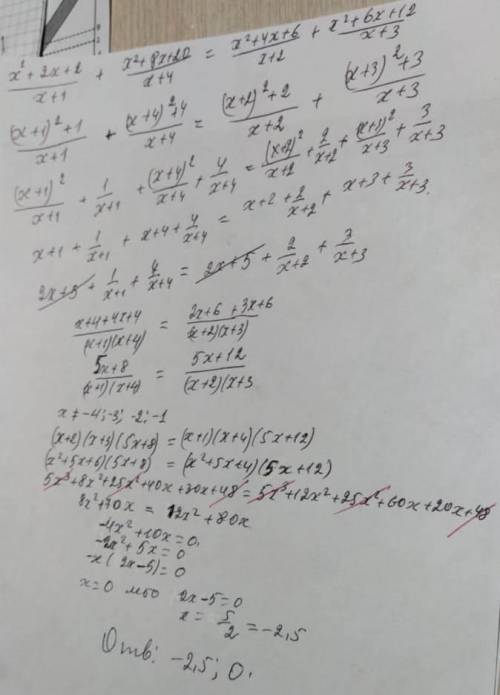 x²+2x+2/x+1 + x²+8x+20/x+4 = x²+4x+6/x+2 + x²+6x+12/x+3
(x+1)²+1/x+1 + (x+4)²+4/x+4 = (x+2)²+2/x+2 + (x+3)²+3/x+3
(x+1)²/x+1 + 1/x+1 + (x+4)²/x+4 + 4/x+4 = (x+2)²/x+2 + 2/x+2 + (x+1)²/x+3 + 3/x+3
x+1 + 1/x+1 + x+4 + 4/x+4 = x+2 + 2/x+2 + x+3 + 3/x+3.
2x+5 + 1/x+1 + 4/x+4 = 2x+5 + 2/x+2 + 3/x+3
x+4+4x+4/(x+1)(x+4) = 2x+6+3x+6/(x+2)(x+3)
5x+8/(x+1)(x+4) = 5x+12/(x+2)(x+3
x≠-4;-3;-2;-1
(x+2)(x+3)(5x+8)=(x+1)(x+4)(5x+12)
(x²+5x+6)(5x+8)=(x²+5x+4)(5x+12)
5x³+8x²+25x²+40x+30x+48=5x³+12x²+25x²+60x+20x+48
8x²+70x=12x²+80x
-4x²+10x=0.
-2x²+5x=0
-x(2x-5)=0
x=0 либо 2x-5=0
x=5/2=-2,5
Отв: -2,5; 0.